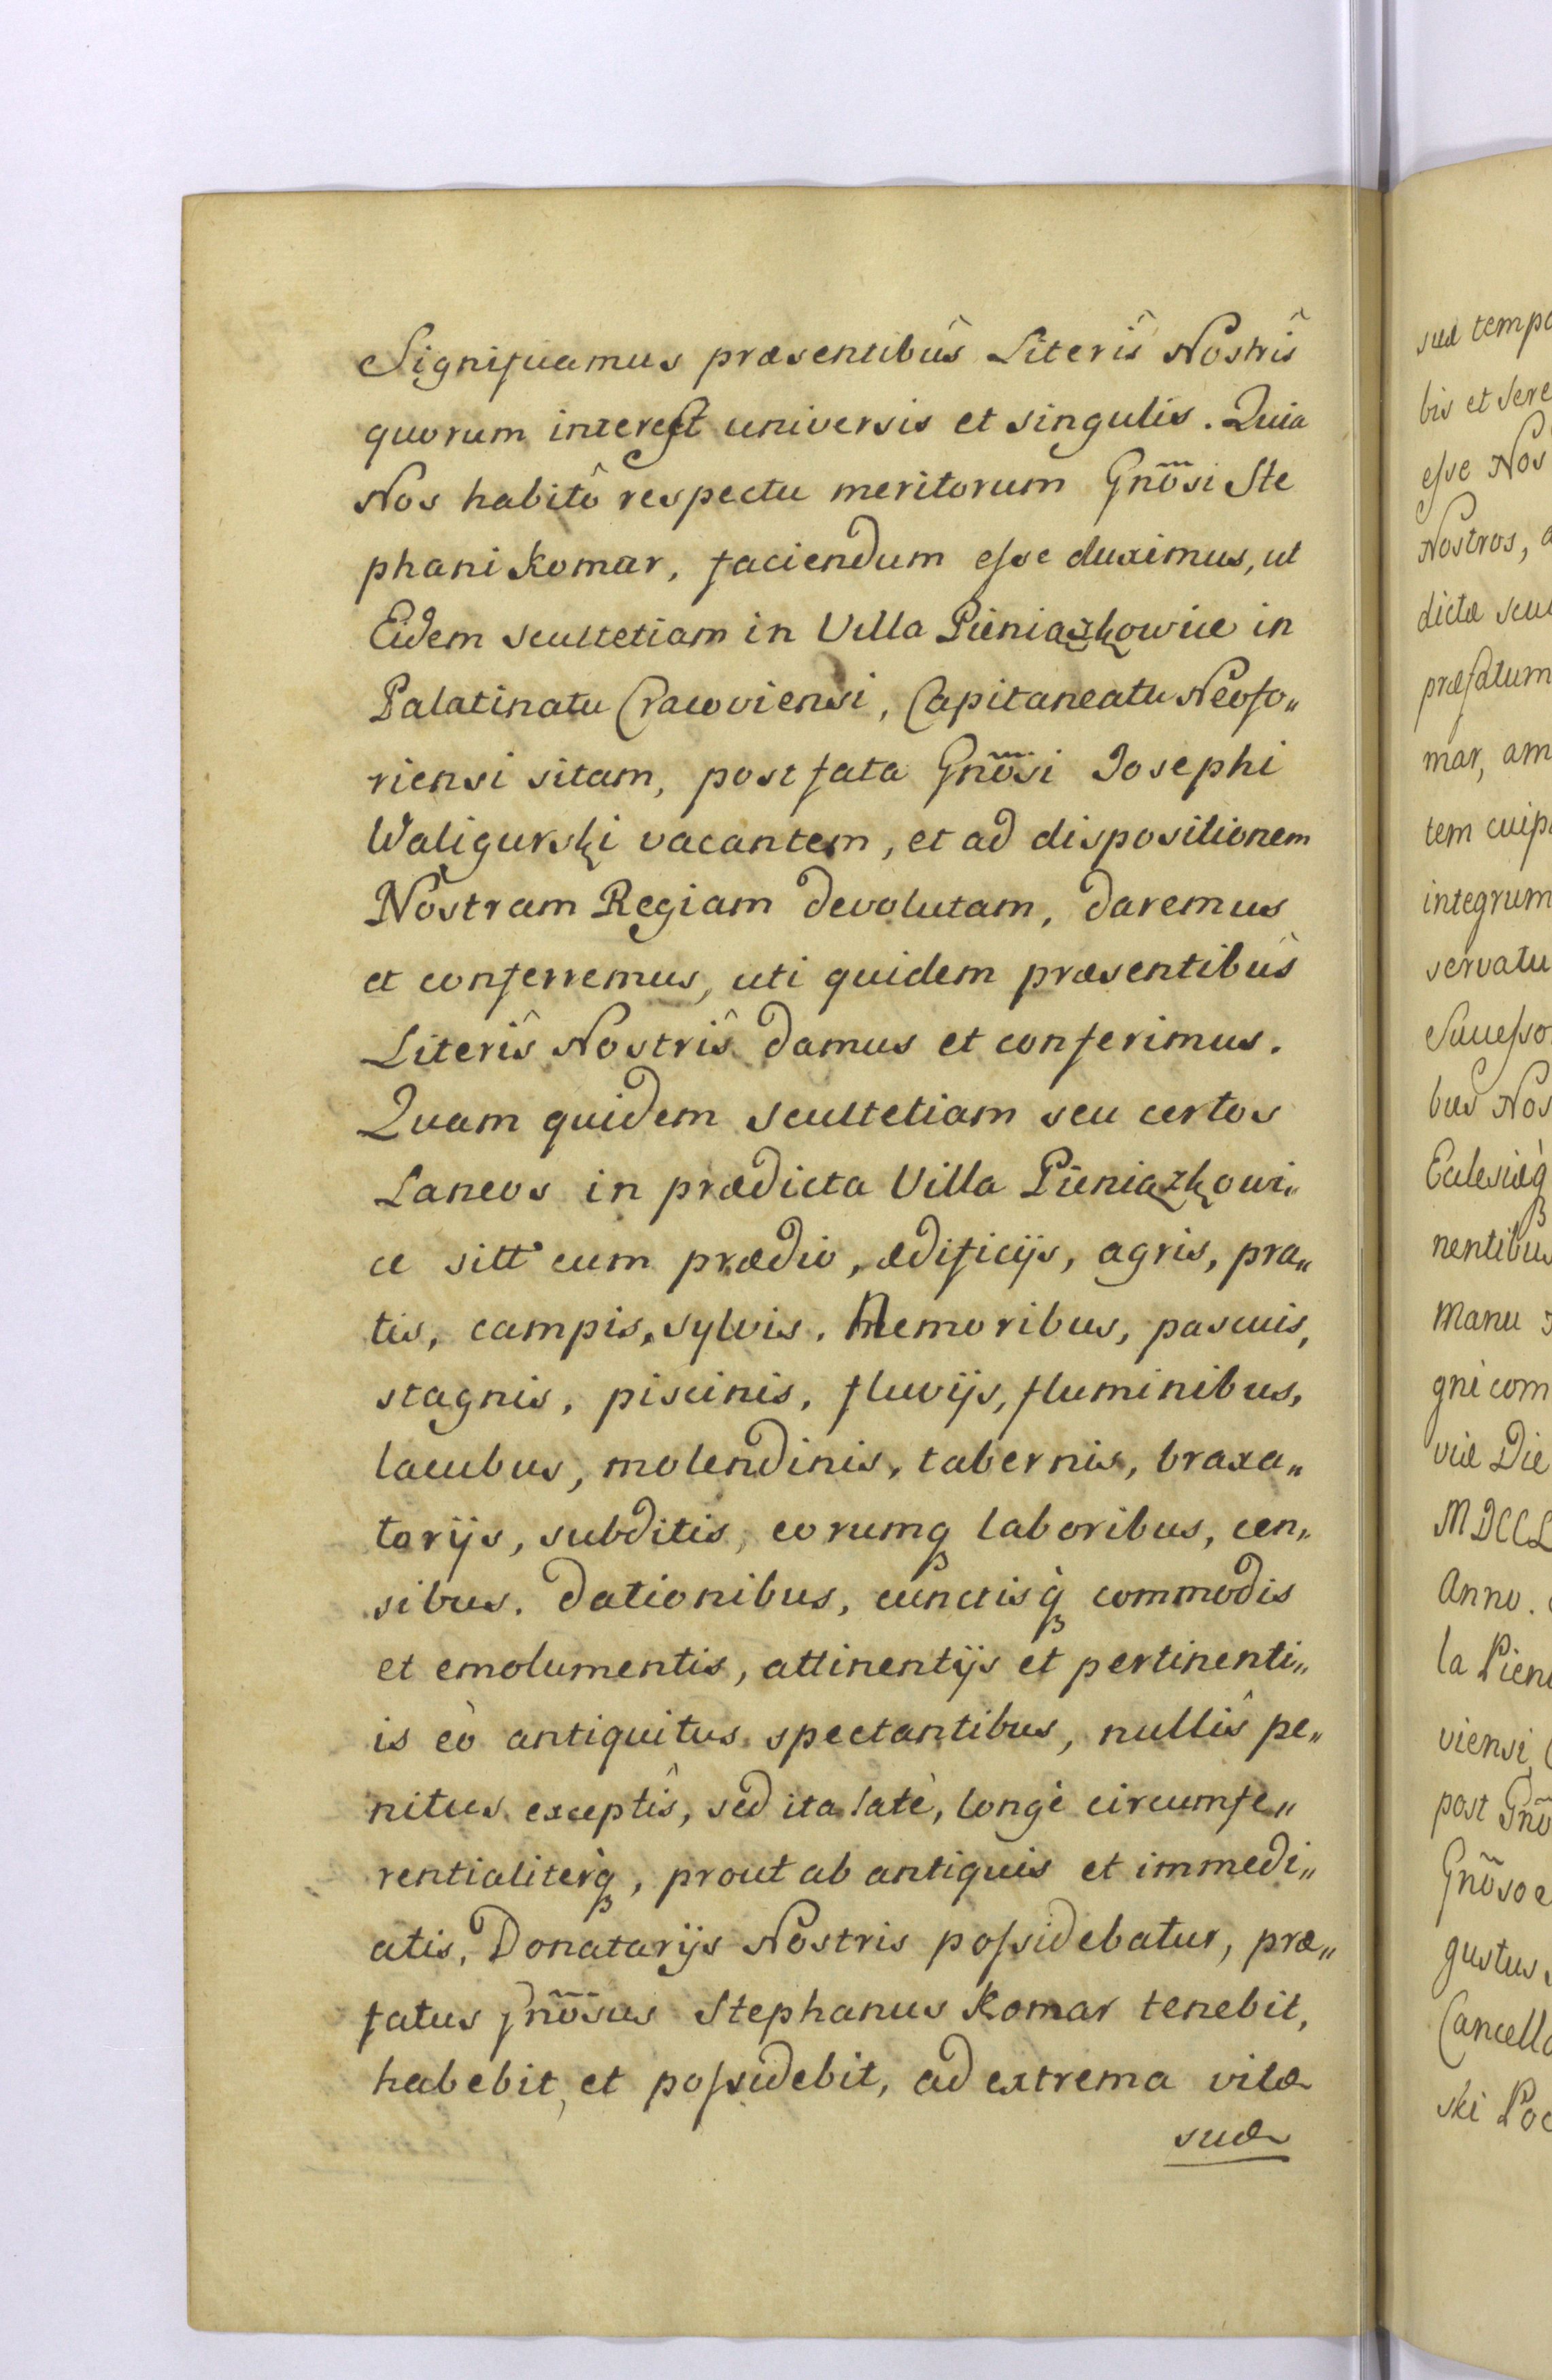 Significamus præsentibûs Literîs Nostrîs
quorum interest universis et singulis. Quia
Nos habitô respectu meritorum Gnõsi Ste
phani Komar, faciendum esse duximus, ut
Eidem scultetiam in Villa Pieniazkowice in
Palatinatu Cracoviensi, Capitaneatu Neofo„
riensi sitam, post fata Gnõsi Josephi
Waligurski vacantem, et ad dispositionem
Nostram Regiam devolutam, daremus
et conferremus, uti quidem præsentibûs
Literîs Nostrîs damus et conferimus.
Quam quidem scultetiam seu certos
Laneos in prædicta Villa Pieniazkowi„
ce sitt cum prædio, ædificijs, agris, pra„
tis, campis, sylvis, Nemoribus, pascuis,
stagnis, piscinis, fluvijs, fluminibus,
lacubus, molendinis, tabernis, braxa„
torijs, subditis, eorumq laboribus, cen„
sibus, dationibus, cunctisq̀ commodis
et emolumentis, attinentijs et pertinenti„
is eò antiquitus spectantibus, nullîs pe„
nitus exceptîs, sed ita latè, longè circumfe„
rentialiterq̀, prout ab antiquis et immedi„
atis, Donatarijs Nostris possidebatur, præ„
fatus Gnõsus Stephanus Komar tenebit,
habebit, et possidebit, ad extrema vitæ
suæ
suæ tempo
bis et Sere
esse Nos
Nostros, a
dictæ scul
præfatum
mar, am
tem cuip
integrum
servatu
Successo
bus Nos
Eclesiæq̀
nentibus
Manu
gni com
viæ Die
MDCCL
Anno.
la Pieni
viensi, C
post Gnõ
Gnõso e
gustus
Cancella
ski Poc